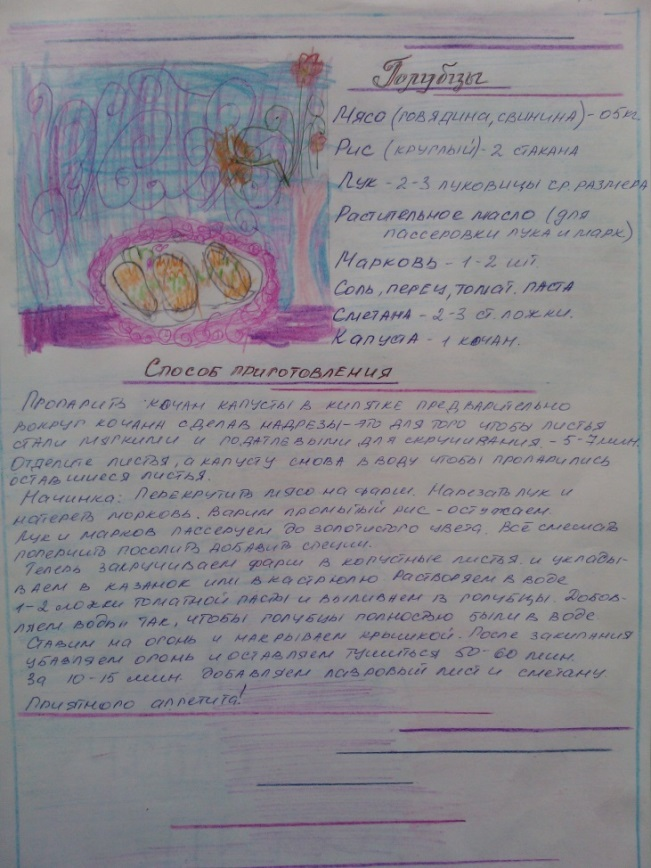 Голубцы
Мясо (говядина, свинина) - 05 кг
Рис (круглый) - 2 стакана
Лук - 2-3 луковицы ср. размера
Растительное масло (для
пассеровки лука и марк)
Марковь - 1-2 шт
Соль, перец, томат. паста
Сметана - 2-3 ст. ложки.
Капуста - 1 кочан.
Способ приготовления
Пропарить кочан капусты в кипятке предварительно
вокруг кочана сделав надрезы - это для того чтобы листья
стали мягкими и податлевыми для скручивания. - 5-7 мин.
Отделите листья, а капусту снова в воду чтобы пропарились
оставшиеся листья.
Начинка: Перекрутить мясо на фарш. Нарезать лук и
натереть морковь. Варим промытый рис - остужаем.
Лук и марковь пассеруем до золотистого цвета. Всё смешать
поперчить посолить добавить специи.
Теперь закручиваем фарш в капустные листья и уклады-
ваем в казанок или в кастрюлю Растворяем в воде
1-2 ложки томатной пасты и выливаем в голубцы. Добов-
ляем воды так, чтобы голубцы полностью были в воде.
Ставим на огонь и накрываем крышкой. После закипания
убавляем огонь и оставляем тушиться 50-60 мин.
За 10-15 мин. добавляем лавровый лист и сметану.
Приятного аппетита!